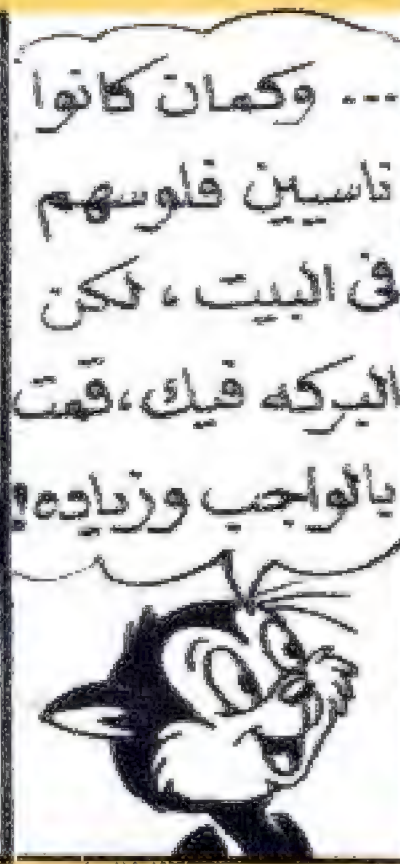 ... وكمان كانوا
ناسيين فلوسهم
فى البيت ، لكن
البركه فيك ،قمت
بالواجب وزياده!